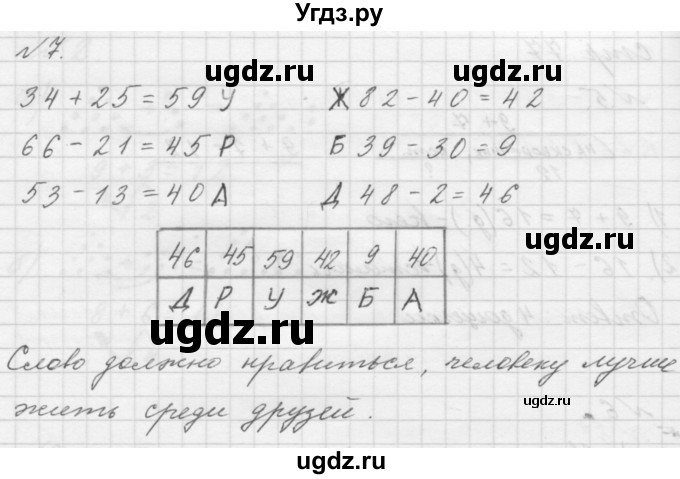 Угдз.ру
№7.
34 + 25 = 59 У Ж 82 - 40 = 42
66 - 21 = 45 Р Б 39 - 30 = 9
53 - 13 = 40 А Д 48 - 2 = 46
46 45 59 42 9 40
Д Р У Ж Б А
Слово должно нравиться, человеку лучше
жить среди друзей.
ugdz.ru
ugdz.ru
ugdz.ru
ugdz.ru
ugdz.ru
ugdz.ru
ugdz.ru
ugdz.ru